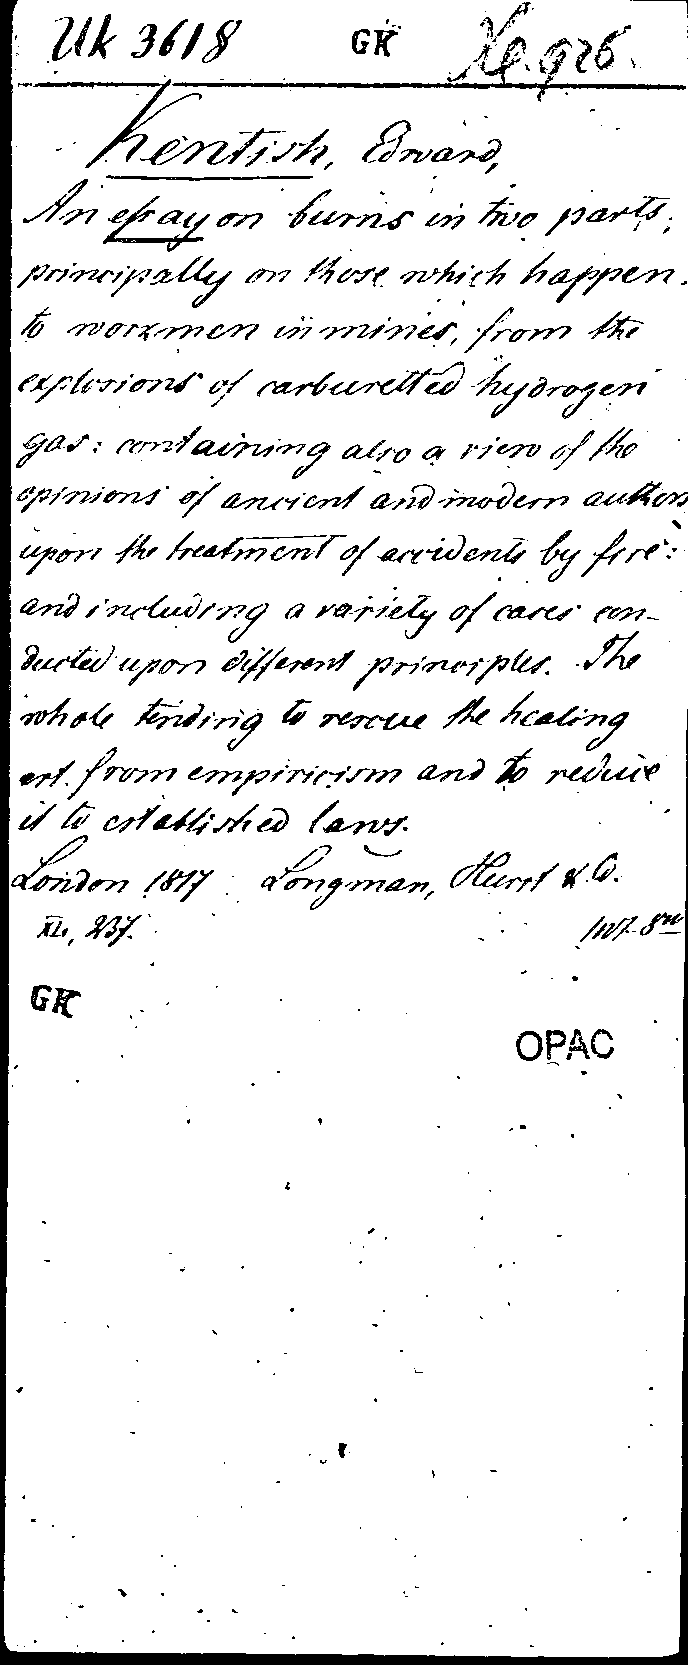 Uk 3618 GK Xe. 926.
Kentish, Edward,
An essay on burns in two parts,
principally on those which happen
to workmen in mines, from the
explosions of carburetted hydrogen
gas: containing also a view of the
opinions of ancient and modern authors
upon the treatment of accidents by fire:
and including a variety of cases con-
ducted upon different principles. The
whole tending to rescue the healing
art from empiricism and to reduce
it to established laws.
London 1817 Longman, Hurst & Co.
XL, 237.
GK
OPAC